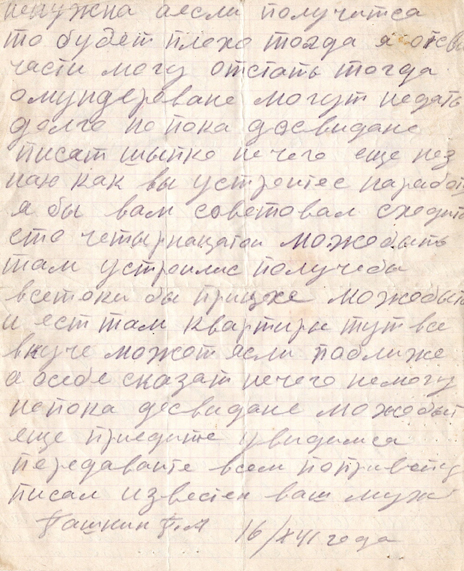 ненужна аесли получитса
то будет плохо тогда я отсва
части могу отстать тогда
омундероване могут недать
долго но пока досвидане
писат шыпко нечего еще нез
наю как вы устроитес наработу
я бы вам советовал сходить
сто четырнацатои можобыть
там устроилис получебы
всетоки бы можобыт
и ест там квартиры тут все
вкуче можот если поближе
а осебе сказат нечего немогу
нопока досвидане можобыт
еще приедите увидимса
передаваите всем попривету
писал известен ваш муж
Пашнин П.А 16/XII года